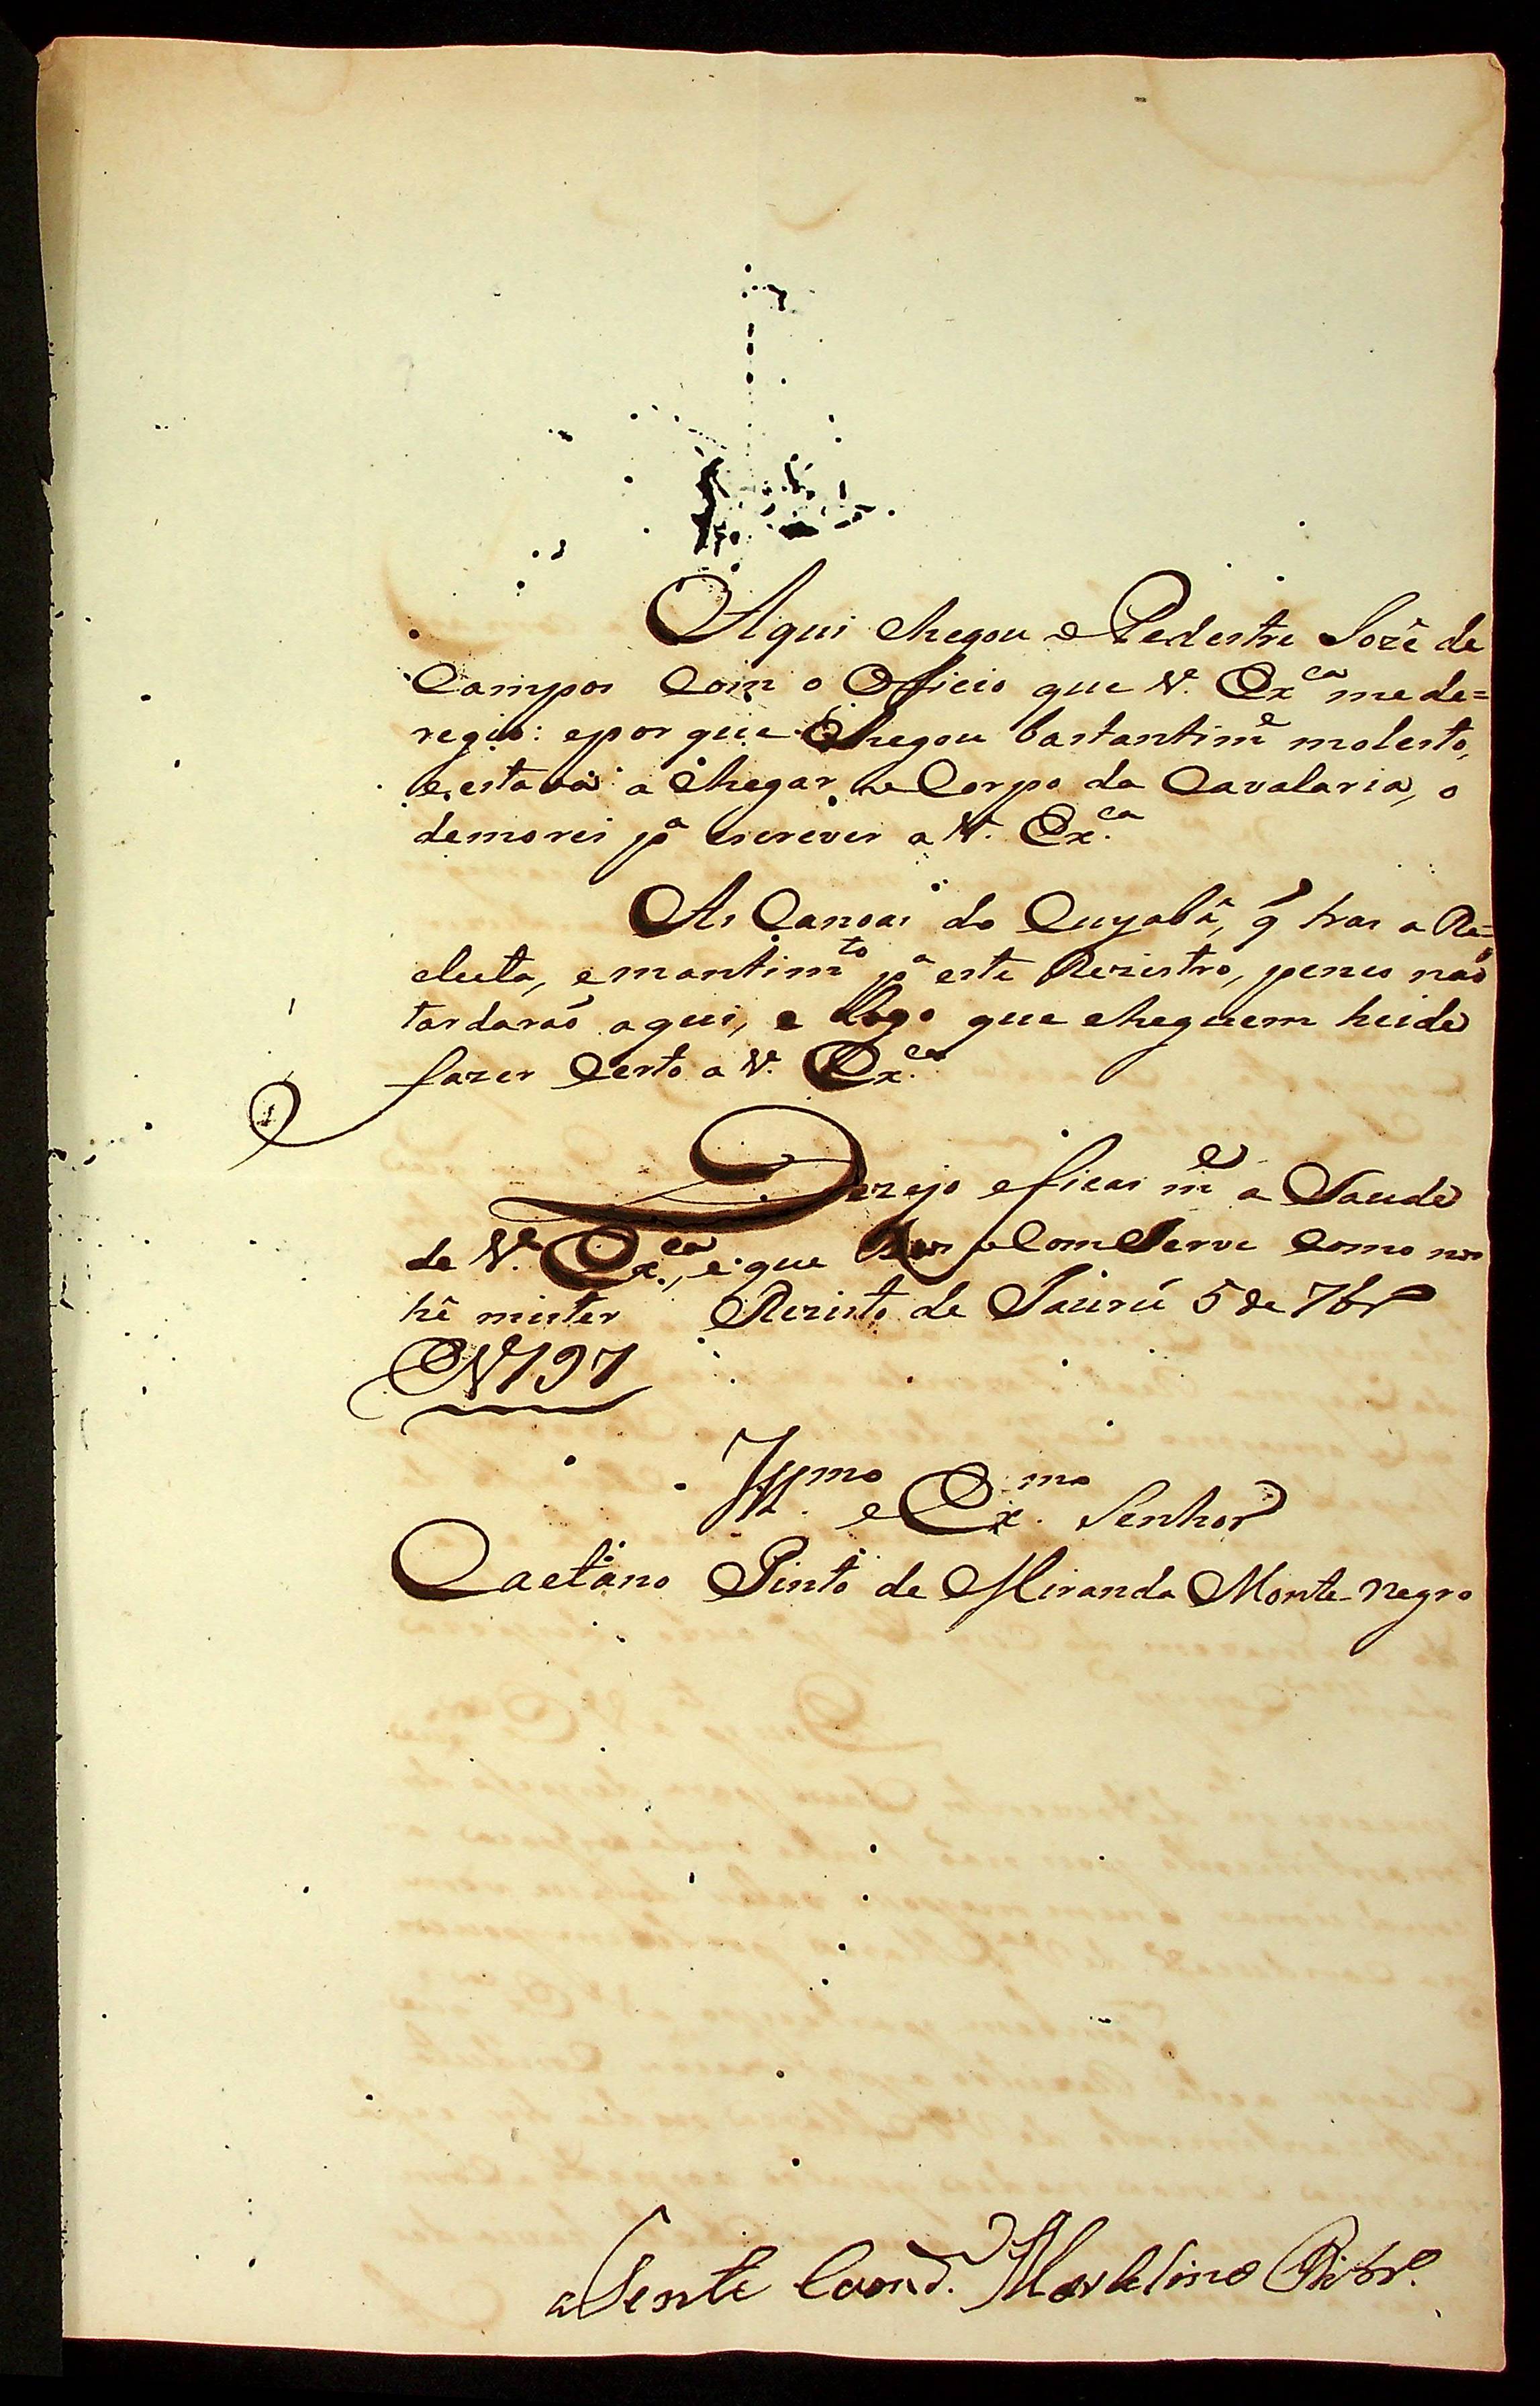 Aqui chegou o Pedestre Jozê de
Campos Com o Officio que V. Ex.ca me de=
regio: epor que Chegou bastantim.e molesto,
e estava a chegar o Corpo da Cavalaria, o
demorei p.a escrever a V. Ex.ca
As Canoas do Cuyabâ, q̃ tras a Re=
cluta, e mantim.to p.a este Rezistro, penço naõ
tardaraõ aqui, e logo que cheguem heide
fazer Certo a V. Ex.ca
Dezejo eficas m.e a Saude
de V. Ex.ca, e que Deos a ComServe Como nos
hê mister Rezisto de Jaurú 5 de 7br.o
1797
Ill.mo e Ex.mo Senhor
Caetano Pinto de Miranda Monte-negro
Tente Comd. Marcelino Ribr.o